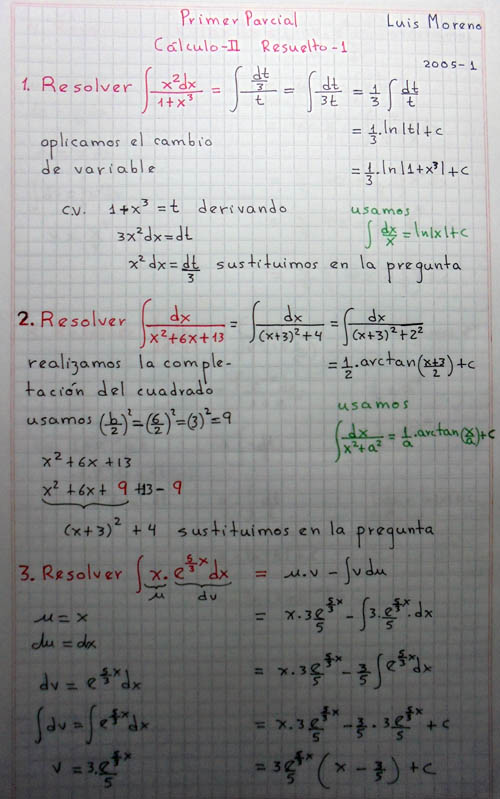 Primer Parcial Luis Moreno
Cálculo-II Resuelto-1
2005-1
1. Resolver ∫ x²dx/(1+x³) = ∫ (dt/3)/t = ∫ dt/3t = 1/3 ∫ dt/t
= 1/3 · ln|t| + c
aplicamos el cambio
de variable
= 1/3 · ln|1+x³| + c
c.v. 1+x³ = t derivando
usamos
3x²dx = dt
∫ dx/x = ln|x| + c
x²dx = dt/3 sustituimos en la pregunta
2. Resolver ∫ dx/(x²+6x+13) = ∫ dx/((x+3)²+4) = ∫ dx/((x+3)²+2²)
realizamos la comple-
= 1/2 · arctan((x+3)/2) + c
tación del cuadrado
usamos (b/2)² = (6/2)² = (3)² = 9
usamos
∫ dx/(x²+a²) = 1/a · arctan(x/a) + c
x² + 6x + 13
x² + 6x + 9 + 13 - 9
(x+3)² + 4 sustituimos en la pregunta
3. Resolver ∫ x · e^(5/3 x) dx = μ·v - ∫ v dμ
μ dv
μ = x
= x · 3e^(5/3 x)/5 - ∫ 3·e^(5/3 x)/5 · dx
dμ = dx
= x · 3e^(5/3 x)/5 - 3/5 ∫ e^(5/3 x) dx
dv = e^(5/3 x) dx
∫ dv = ∫ e^(5/3 x) dx
= x · 3e^(5/3 x)/5 - 3/5 · 3e^(5/3 x)/5 + c
v = 3·e^(5/3 x)/5
= 3e^(5/3 x)/5 (x - 3/5) + c